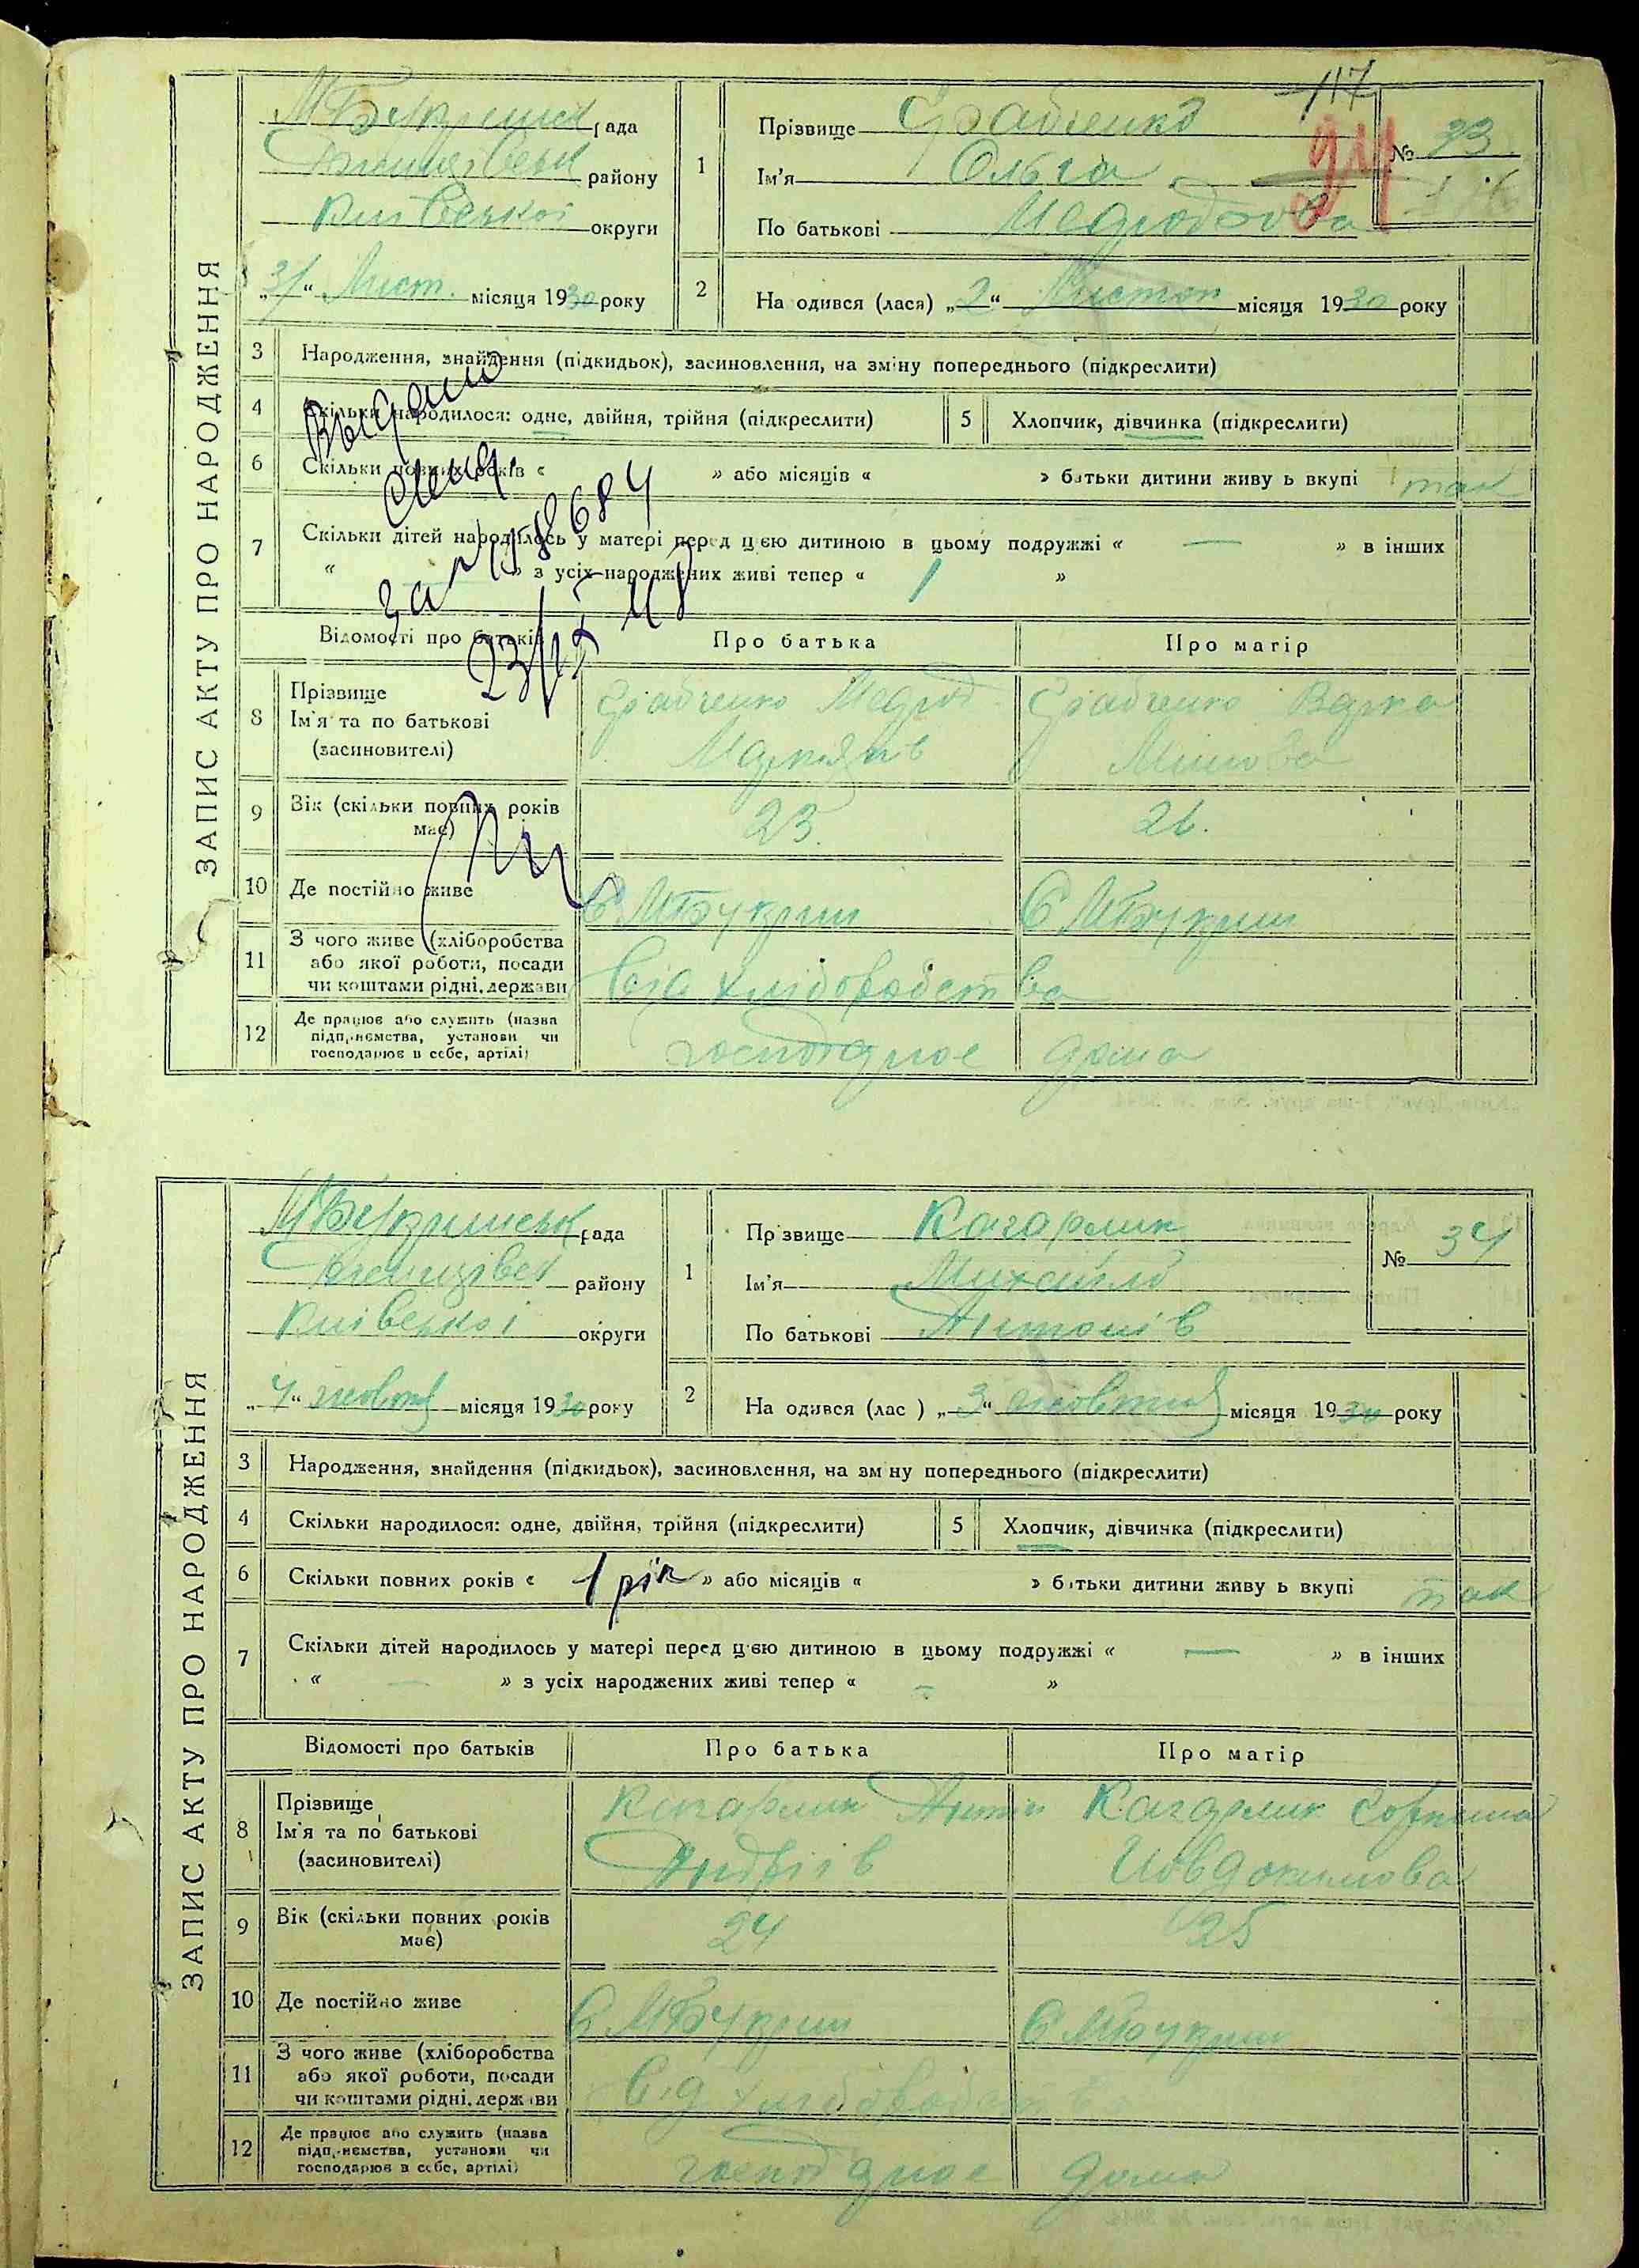 117
ЗАПИС АКТУ ПРО НАРОДЖЕННЯ
рада
району
округи
місяця 1930 року
1
Прізвище
Ім'я Ольга
По батькові
№ 33
2
На одився (лася) „2“ місяця 1930 року
3 Народження, знайдення (підкидьок), засиновлення, на зміну попереднього (підкреслити)
4 Скільки народилося: одне, двійня, трійня (підкреслити)
5 Хлопчик, дівчинка (підкреслити)
6 Скільки повних років « » або місяців « » батьки дитини живу ь вкупі так
7 Скільки дітей народилось у матері перед цією дитиною в цьому подружжі « — » в інших
« » з усіх народжених живі тепер « 1 »
Відомості про батьків Про батька Про матір
8 Прізвище
Ім'я та по батькові
(засиновителі)
9 Вік (скільки повних років має) 23. 26.
10 Де постійно живе С МБукрин С МБукрин
11 З чого живе (хліборобства або якої роботи, посади чи коштами рідні, держави від хліборобства
12 Де працює або служить (назва підприємства, установи чи господарює в себе, артілі) господарює дома
ЗАПИС АКТУ ПРО НАРОДЖЕННЯ
МБукринськ рада
району
Київської округи
„4“ жовтня місяця 1930 року
1
Пр звище Кагарлик
Ім'я Михайло
По батькові Антонів
№ 34
2
На одився (лас ) „3“ жовтня місяця 1930 року
3 Народження, знайдення (підкидьок), засиновлення, на зм ну попереднього (підкреслити)
4 Скільки народилося: одне, двійня, трійня (підкреслити)
5 Хлопчик, дівчинка (підкреслити)
6 Скільки повних років « 1 рік » або місяців « » батьки дитини живу ь вкупі так
7 Скільки дітей народилось у матері перед цією дитиною в цьому подружжі « — » в інших
« — » з усіх народжених живі тепер « - »
Відомості про батьків Про батька Про матір
8 Прізвище
Ім'я та по батькові
(засиновителі)
Кагарлик Антін Кагарлик
Андріїв Йовдокимова
9 Вік (скільки повних років має) 24 25
10 Де постійно живе С МБукрин С МБукрин
11 З чого живе (хліборобства або якої роботи, посади чи коштами рідні, держави від хліборобст
12 Де працює або служить (назва підприємства, установи чи господарює в себе, артілі) господарює дома